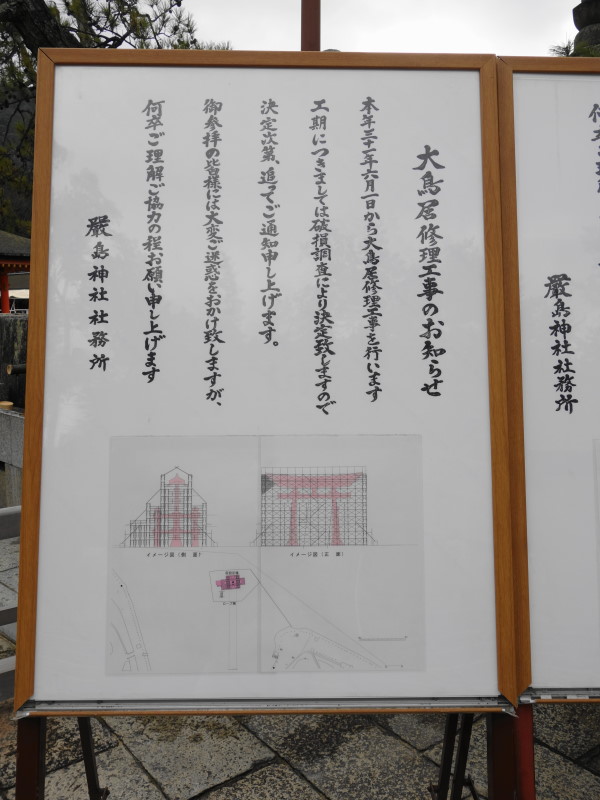 大鳥居修理工事のお知らせ
本年三十一年六月一日から大鳥居修理工事を行います
工期につきましては破損調査により決定致しますので
決定次第、追ってご通知申し上げます。
御参拝の皆様には大変ご迷惑をおかけ致しますが、
何卒ご理解ご協力の程お願い申し上げます
嚴島神社社務所
イメージ図(側面)
イメージ図(正面)
嚴島神社社務所